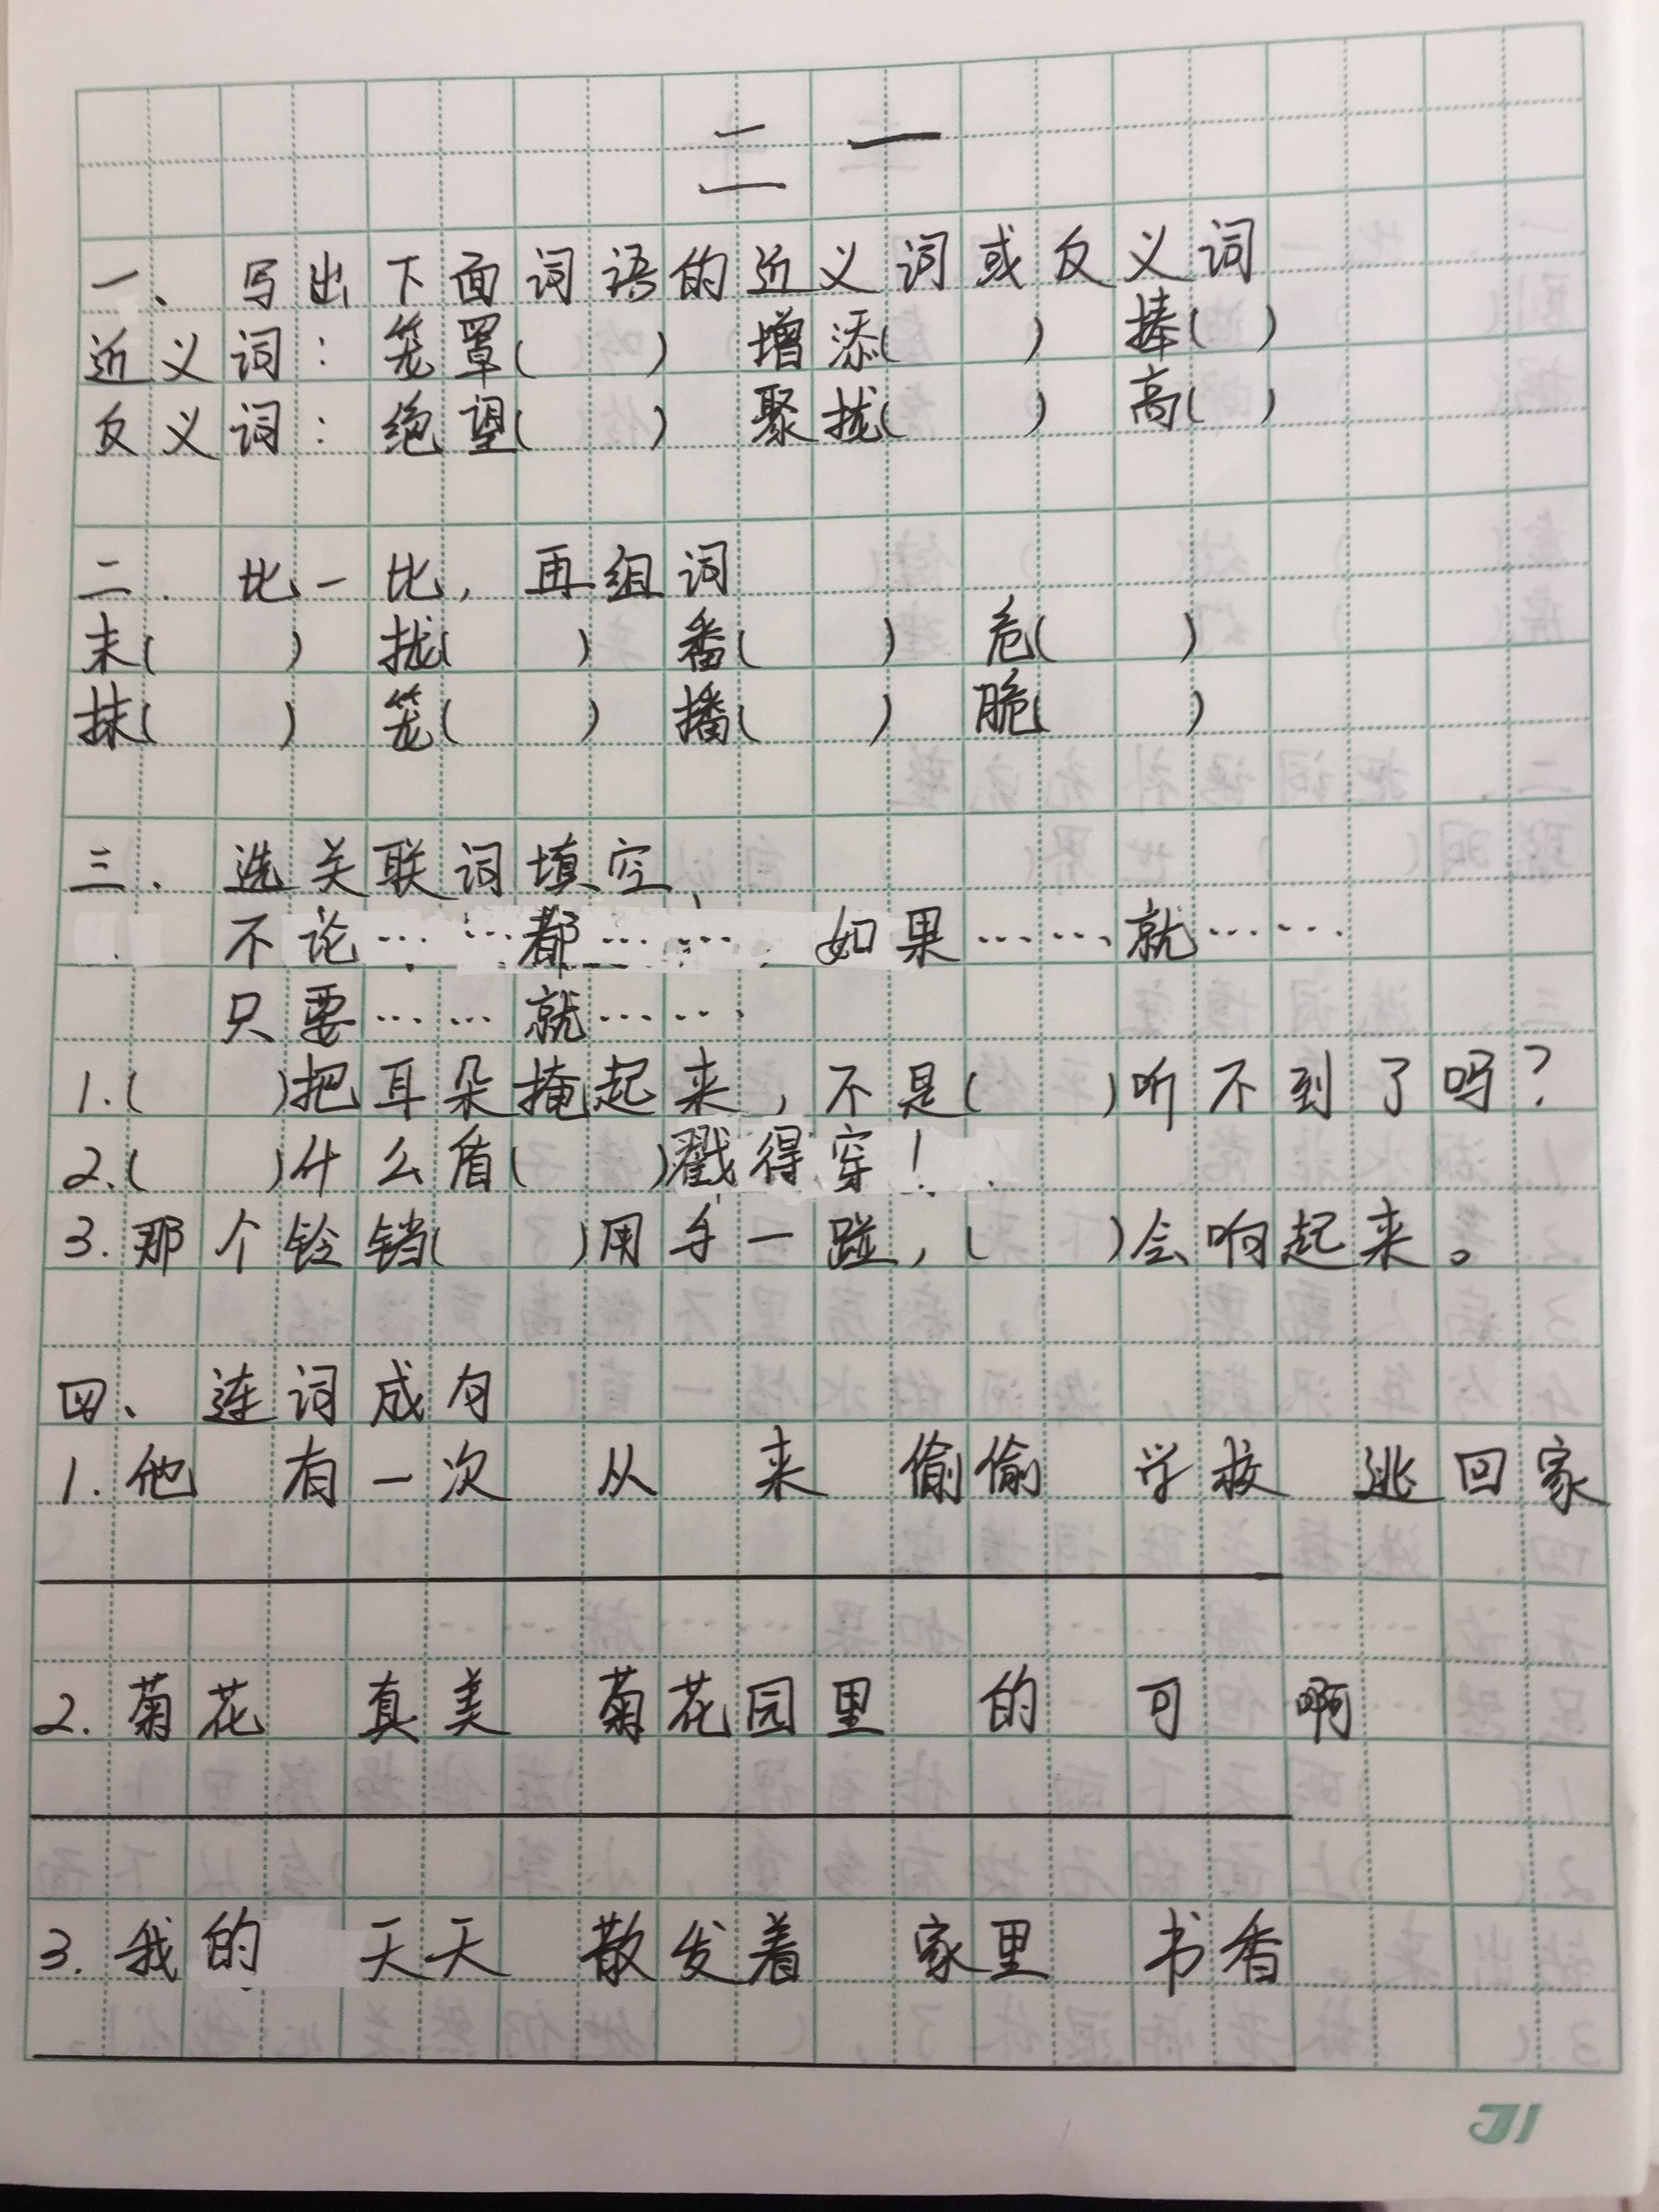 二一
一、写出下面词语的近义词或反义词
近义词：笼罩(    ) 增添(    ) 捧(  )
反义词：绝望(    ) 聚拢(    ) 高(  )
二．比一比，再组词
末(    ) 拢(    ) 番(    ) 危(    )
抹(    ) 笼(    ) 播(    ) 脆(    )
三．选关联词填空
不论……都…… 如果……就……
只要……就……
1.(    )把耳朵掩起来，不是(    )听不到了吗？
2.(    )什么盾(    )戳得穿！
3.那个铃铛(    )用手一碰，(    )会响起来。
四、连词成句
1.他 有一次 从 来 偷偷 学校 逃回家
2.菊花 真美 菊花园里 的 可 啊
3.我的 天天 散发着 家里 书香